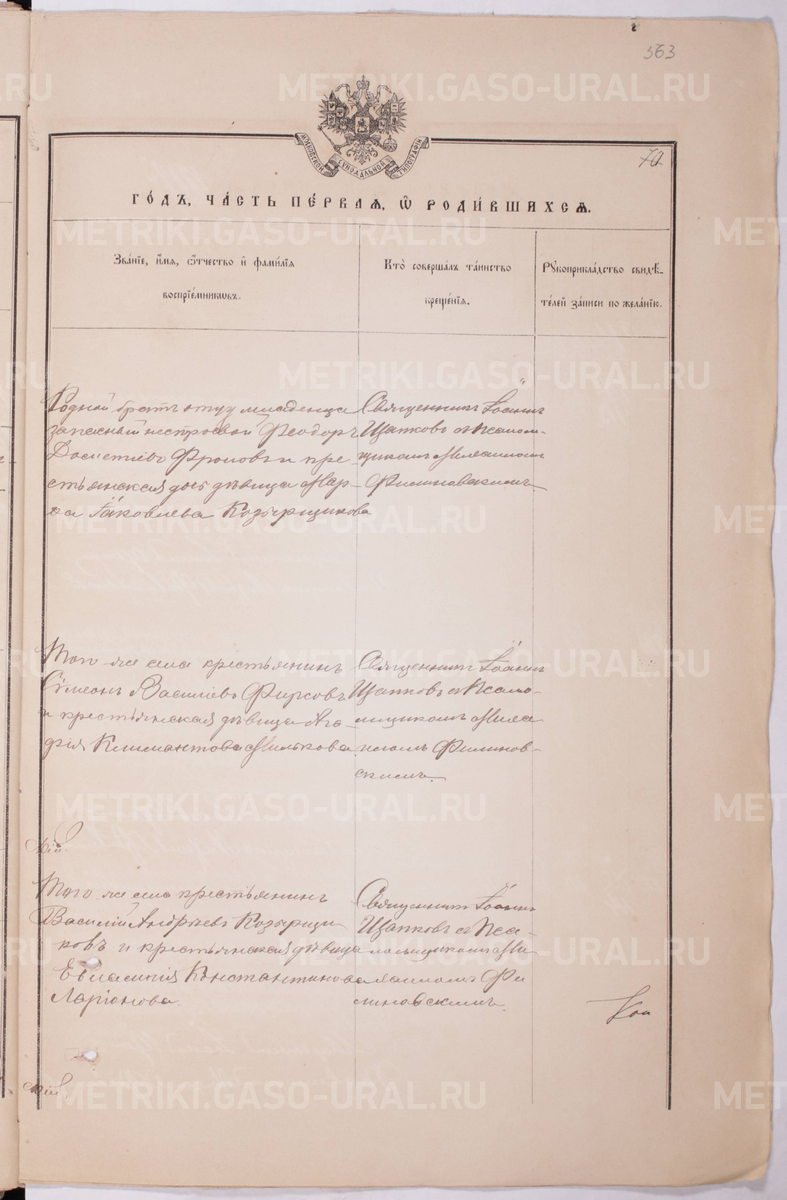 363
70
МОСКОВСКОЙ СѴНОДАЛЬНОЙ ТИПОГРАФІИ
ГО́ДЪ, ЧА́СТЬ ПЕ́РВАѦ, Ѽ РОДИ́ВШИХСѦ.
Зва́нїе, и҆́мѧ, ѻ҆́тчество и҆ фами́лїѧ
воспрїе́мникѡвъ.
Кто̀ соверша́лъ та́инство
креще́нїѧ.
Рꙋкоприкла́дство свидѣ́-
телей за́писи по жела́нїю.
Родной братъ отцу младенца
запасный нестроевой Феодоръ
Фроловъ и кре-
стьянская дочь дѣвица Мар-
ѳа Іаковлева Козырщикова
Священникъ Іоаннъ
Щапковъ съ Псалом-
щикомъ
Филиновскимъ
Того-же села крестьянинъ
Сѵмеонъ Василіевъ Фирсовъ
и крестьянская дѣвица Ага-
фія Милькова
Священникъ Іоаннъ
Щапковъ съ Псало-
мщикомъ
Филинов-
скимъ.
Того же села крестьянинъ
Василій Андреевъ Козырщи-
ковъ и крестьянская дѣвица
Евлампія Константинова
Ларіонова.
Священникъ Іоаннъ
Щапковъ съ Пса-
ломщикомъ
Фи-
линовскимъ.
METRIKI.GASO-URAL.RU